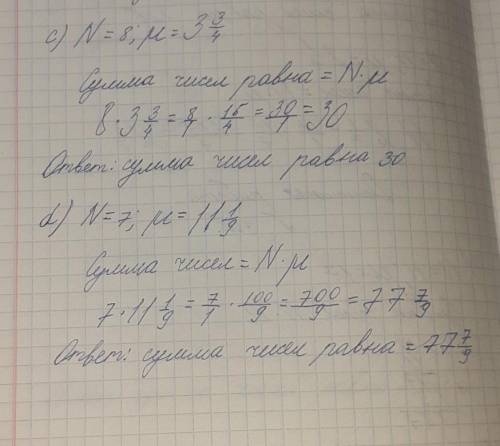 c) N = 8; μ = 3 3/4
Сумма чисел равна = N·μ
8·3 3/4 = 8/1 · 15/4 = 30/1 = 30
Ответ: сумма чисел равна 30
d) N = 7; μ = 11 1/9
Сумма чисел = N·μ
7·11 1/9 = 7/1 · 100/9 = 700/9 = 77 7/9
Ответ: сумма чисел равна = 77 7/9